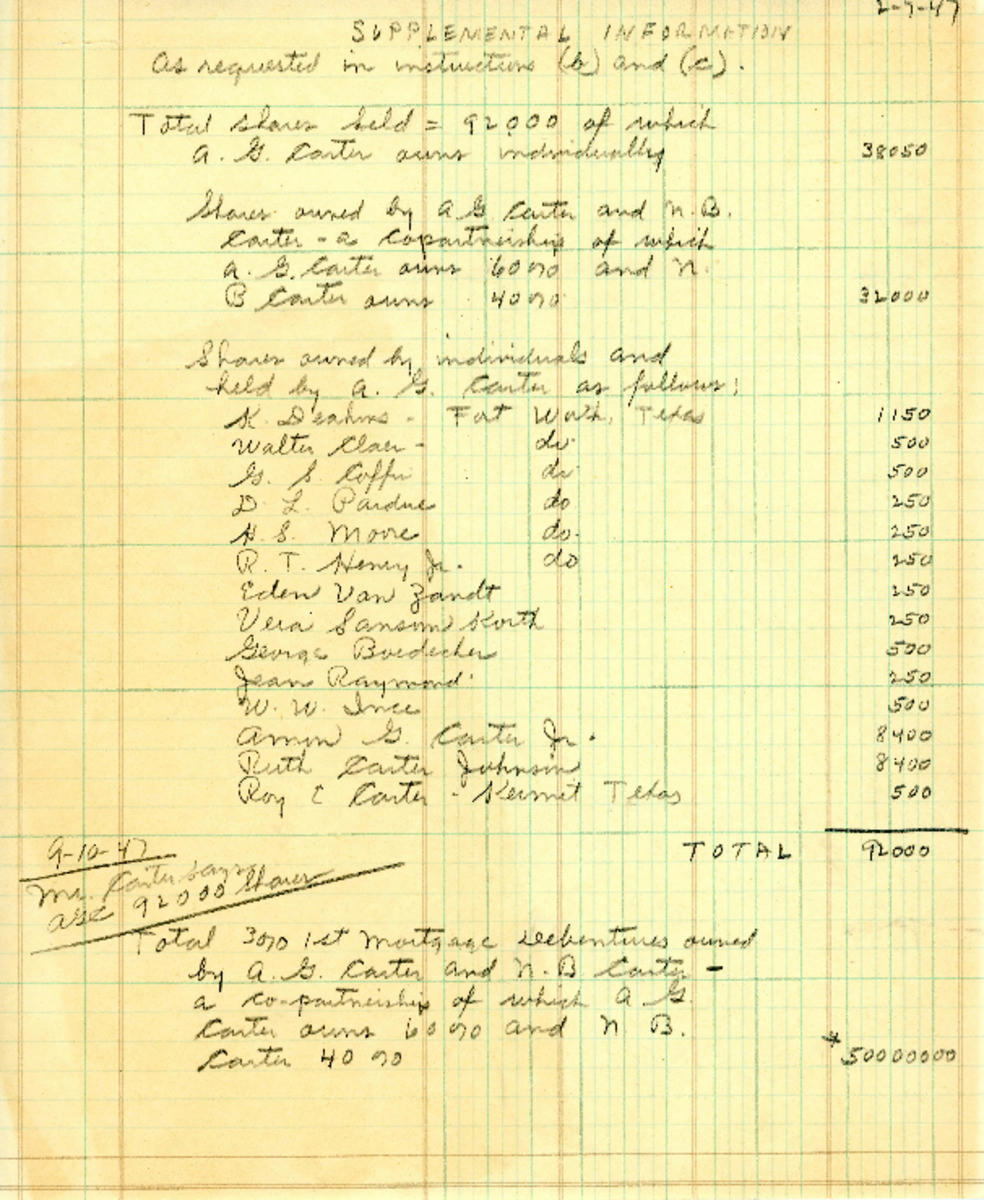 2-7-47
SUPPLEMENTAL INFORMATION
As requested in instructions (b) and (c).
Total shares held = 92000 of which
A. G. Carter owns individually 38050
Shares owned by A G Carter and N. B.
Carter - a copartnership of which
A. G. Carter owns 60% and N.
B Carter owns 40% 32000
Shares owned by individuals and
held by A. G. Carter as follows:
K. Deakins - Fort Worth, Texas 1150
Walter Claer - do 500
G. S. Coffin do 500
D. L. Pardue do 250
H. S. Moore do. 250
R. T. Henry Jr. do 250
Eden Van Zandt 250
Vera Sansom Korth 250
George Boedecker 500
Jean Raymond 250
W. W. Ince 500
Amon G. Carter Jr. 8400
Ruth Carter Johnson 8400
Roy E Carter - Kermit Texas 500
TOTAL 92000
9-10-47
Mr. Carter says
AGC 92000 Shares
Total 3% 1st Mortgage Debentures owned
by A. G. Carter and N. B Carter -
a co-partnership of which A G.
Carter owns 60% and N B.
Carter 40% 50000000